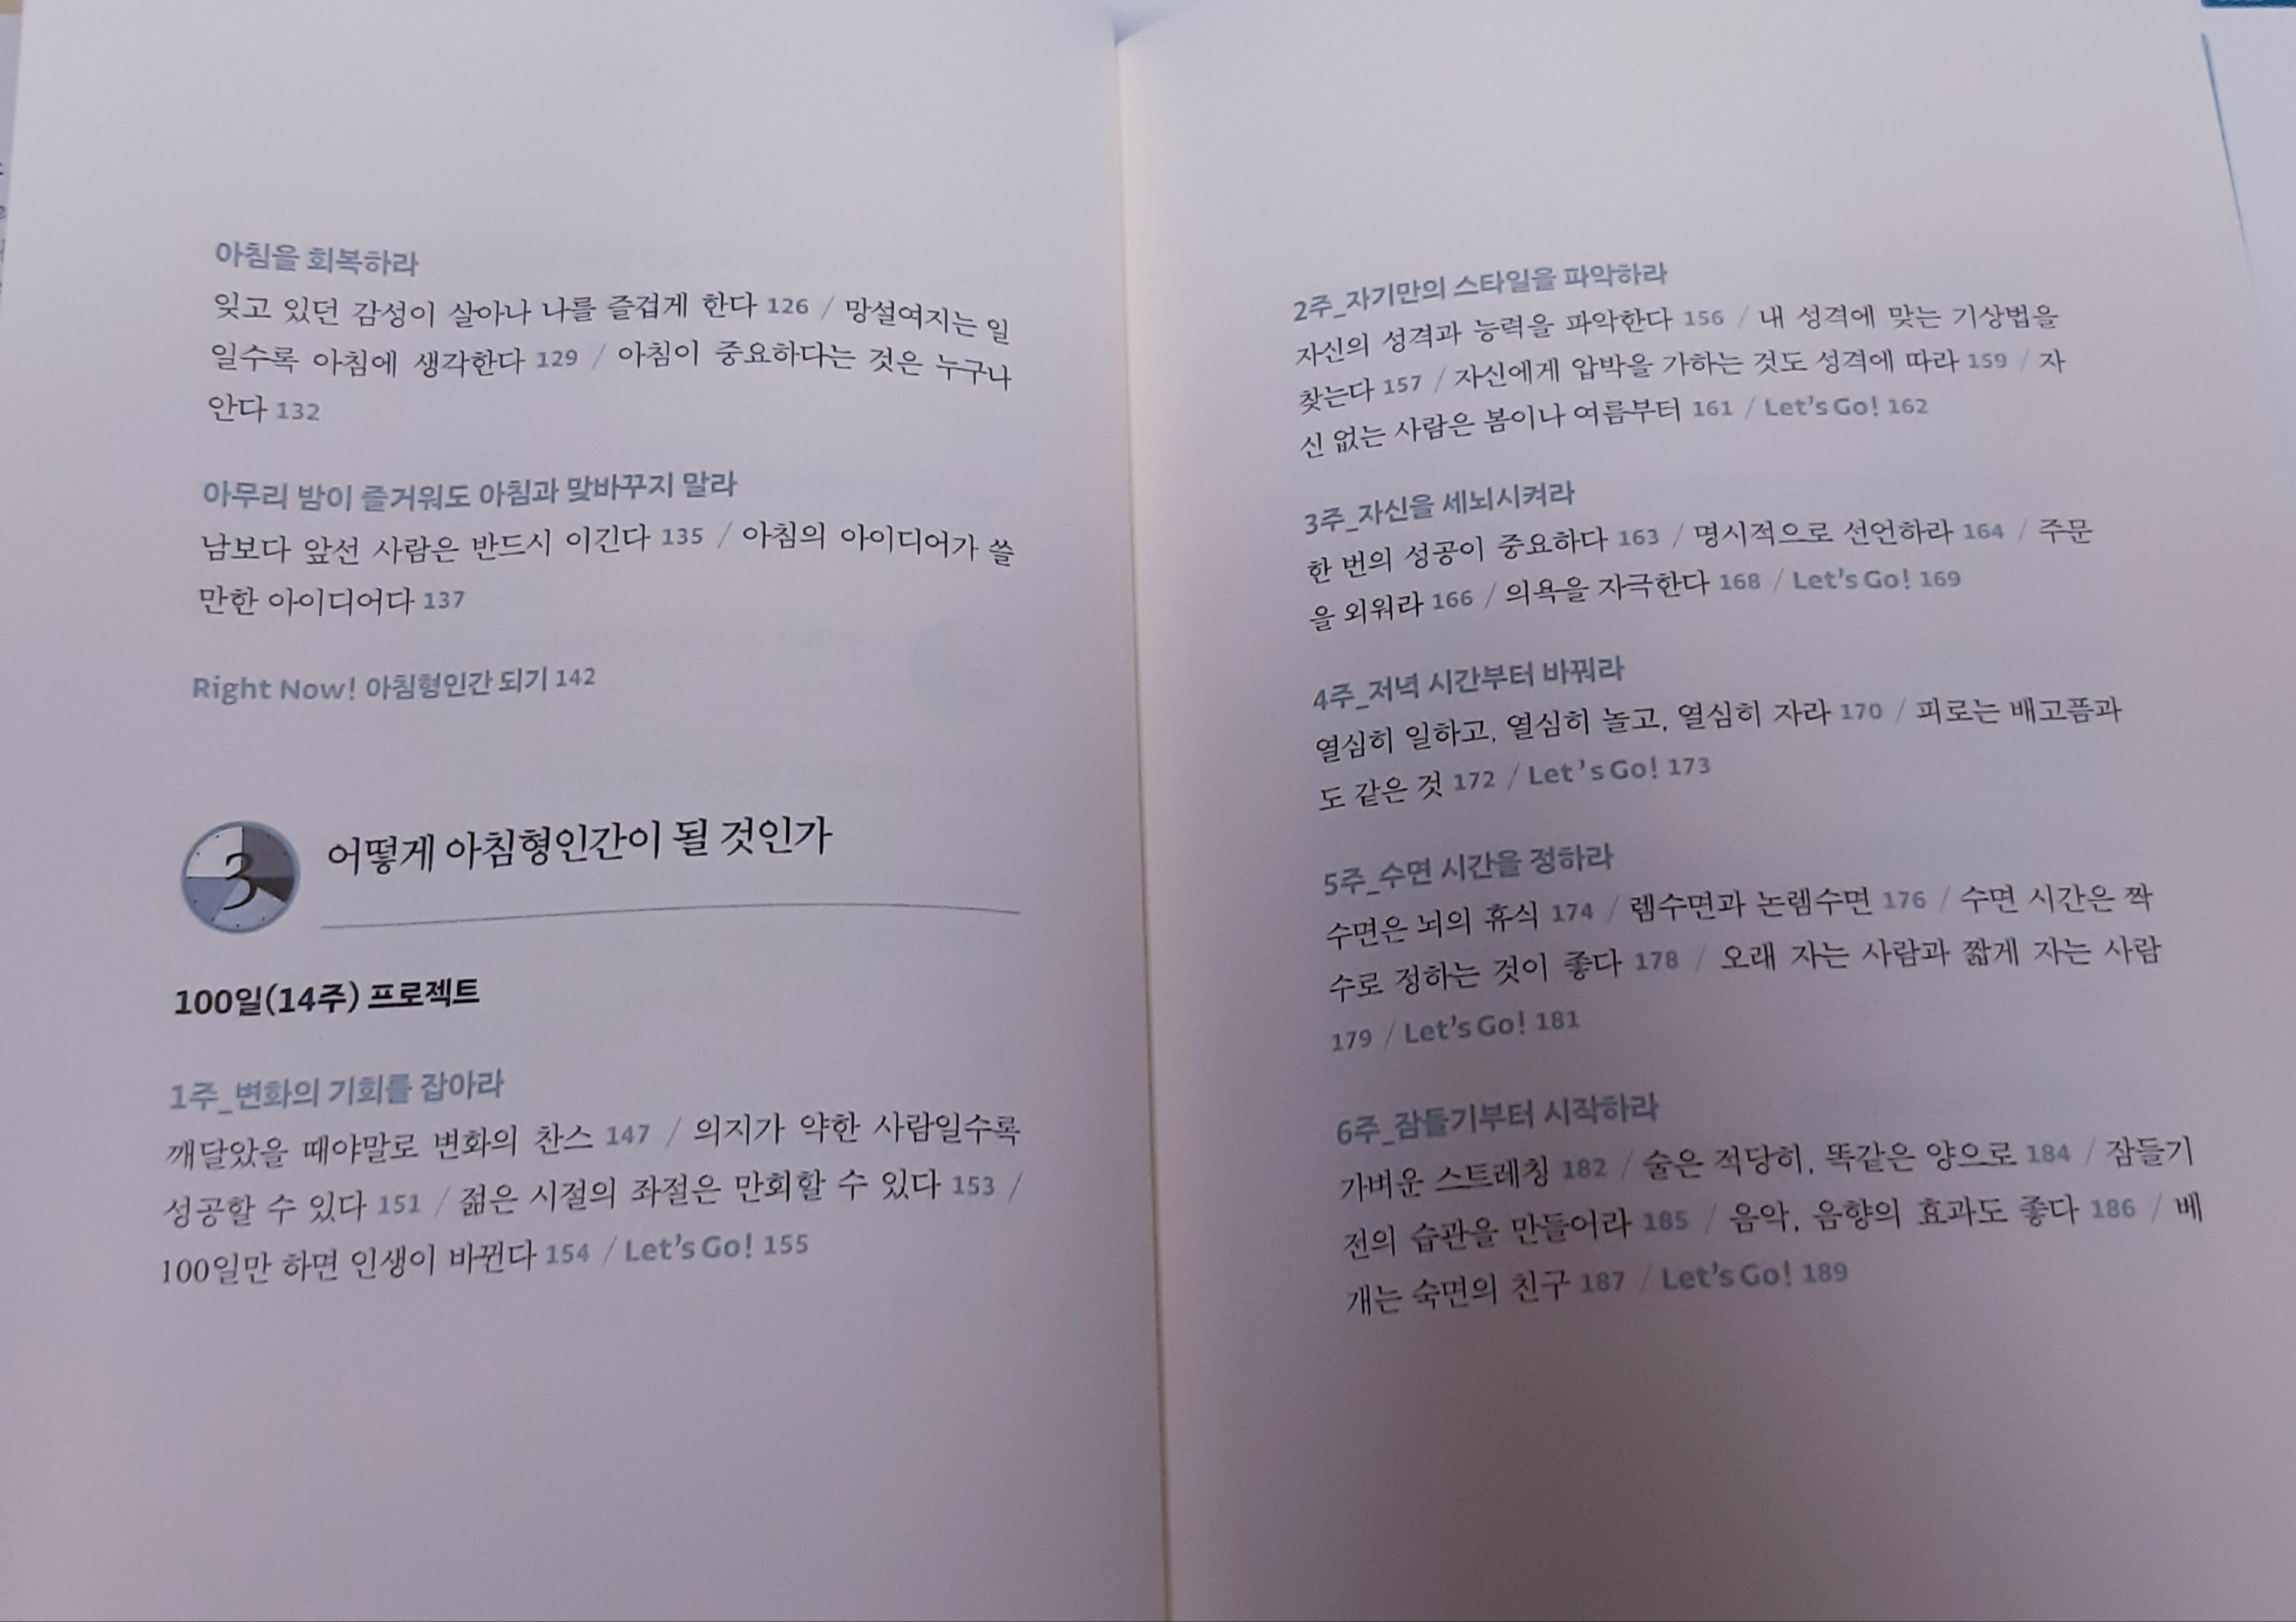 아침을 회복하라
잊고 있던 감성이 살아나 나를 즐겁게 한다 126 / 망설여지는 일
일수록 아침에 생각한다 129 / 아침이 중요하다는 것은 누구나
안다 132
아무리 밤이 즐거워도 아침과 맞바꾸지 말라
남보다 앞선 사람은 반드시 이긴다 135 / 아침의 아이디어가 쓸
만한 아이디어다 137
Right Now! 아침형인간 되기 142
3 어떻게 아침형인간이 될 것인가
100일(14주) 프로젝트
1주_변화의 기회를 잡아라
깨달았을 때야말로 변화의 찬스 147 / 의지가 약한 사람일수록
성공할 수 있다 151 / 젊은 시절의 좌절은 만회할 수 있다 153 /
100일만 하면 인생이 바뀐다 154 / Let's Go! 155
2주_자기만의 스타일을 파악하라
자신의 성격과 능력을 파악한다 156 / 내 성격에 맞는 기상법을
찾는다 157 / 자신에게 압박을 가하는 것도 성격에 따라 159 / 자
신 없는 사람은 봄이나 여름부터 161 / Let's Go! 162
3주_자신을 세뇌시켜라
한 번의 성공이 중요하다 163 / 명시적으로 선언하라 164 / 주문
을 외워라 166 / 의욕을 자극한다 168 / Let's Go! 169
4주_저녁 시간부터 바꿔라
열심히 일하고, 열심히 놀고, 열심히 자라 170 / 피로는 배고픔과
도 같은 것 172 / Let's Go! 173
5주_수면 시간을 정하라
수면은 뇌의 휴식 174 / 렘수면과 논렘수면 176 / 수면 시간은 짝
수로 정하는 것이 좋다 178 / 오래 자는 사람과 짧게 자는 사람
179 / Let's Go! 181
6주_잠들기부터 시작하라
가벼운 스트레칭 182 / 술은 적당히, 똑같은 양으로 184 / 잠들기
전의 습관을 만들어라 185 / 음악, 음향의 효과도 좋다 186 / 베
개는 숙면의 친구 187 / Let's Go! 189